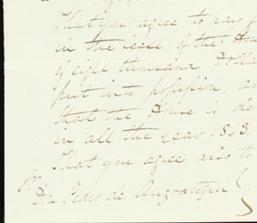 That you agree to pay
in the lease of the House
of eight thousand Dolla
put into possession, a
that the House is de
in all the year 1843.
That you agree also to
Dn Pedro de